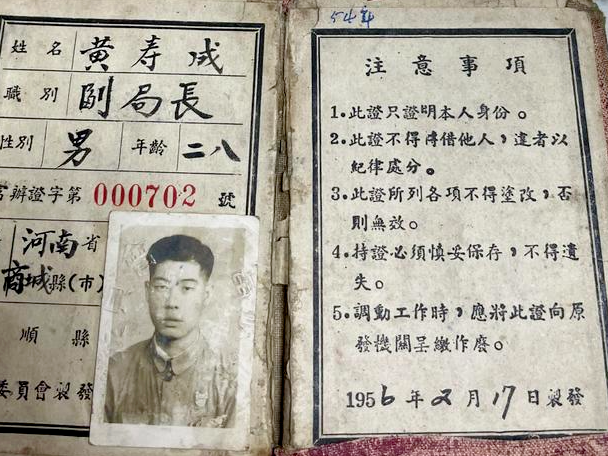 姓名 黄寿成
職別 副局長
性别 男 年齡 二八
辦證字第 000702 號
河南省
商城縣(市)
順縣
委員會製發
54年
注意事項
1.此證只證明本人身份。
2.此證不得轉借他人，違者以
紀律處分。
3.此證所列各項不得塗改，否
則無效。
4.持證必須慎妥保存，不得遺
失。
5.調動工作時，應將此證向原
發機關呈繳作廢。
1956年2月17日製發